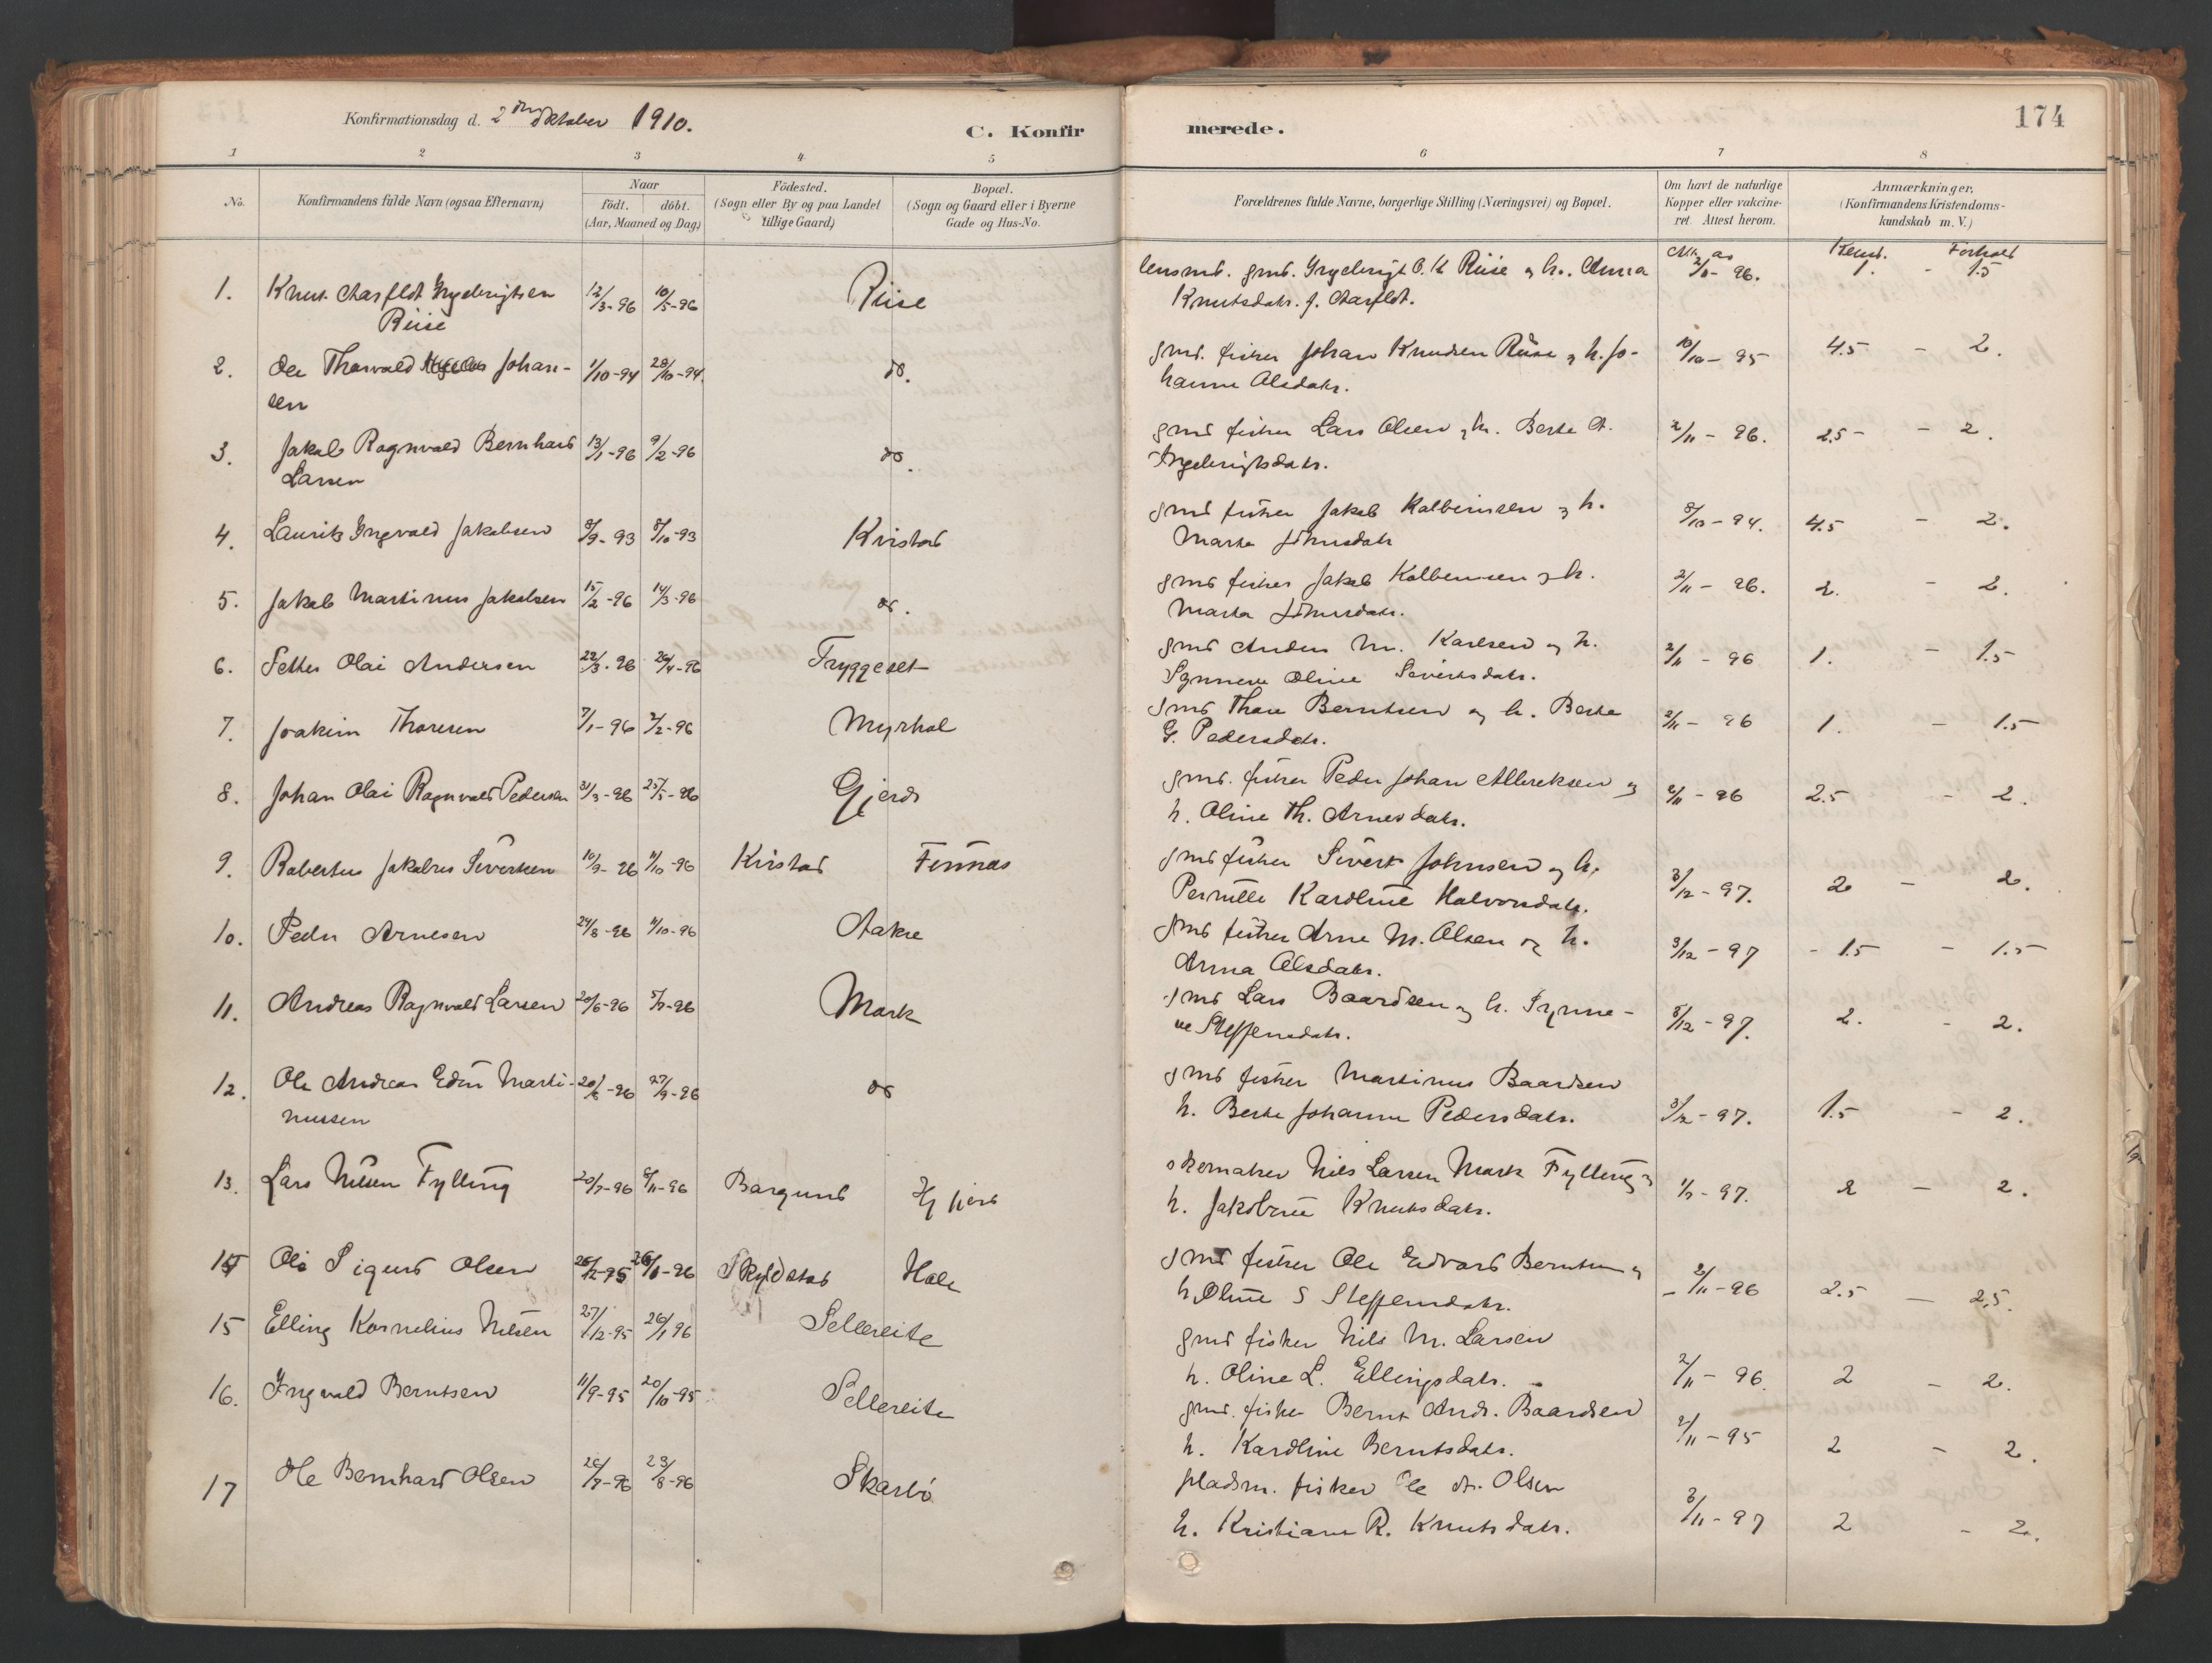 Konfirmationsdag d. 2den Oktober 1910.
C. Konfirmerede.
174
1 2 3 4 5 6 7 8
No.
Konfirmandens fulde Navn (ogsaa Efternavn)
Naar
födt. döbt.
(Aar, Maaned og Dag)
Födested.
(Sogn eller By og paa Landet
tillige Gaard)
Bopæl.
(Sogn og Gaard eller i Byerne
Gade og Hus-No.
Forældrenes fulde Navne, borgerlige Stilling (Næringsvei) og Bopæl.
Om havt de naturlige
Kopper eller vakcine-
ret. Attest herom.
Anmærkninger.
(Konfirmandens Kristendoms-
kundskab m. V.)
Kund. Forhold
1. Knut Aarflot Ingebrigtsen 12/3-96 10/5-96 Riise lensmd. gmd. Ingebrigt O. K. Riise og h. Anna 2/11-96. 1. - 1.5
Riise Knutsdatr. f. Aarflot.
2. Ole Thorvald Johan- 1/10-94 28/10-94. do. gmd. fisker Johan Knudsen Riise og h. Jo- 10/10-95 4.5 - 2.
sen hanne Olsdatr.
3. Jakob Ragnvald Bernhard 13/1-96 9/2-96 do. gmd fisker Lars Olsen og h. Berte A. 2/11-96. 2.5 - 2.
Larsen Ingebrigtsdatr.
4. Laurits Ingvald Jakobsen 8/9-93 8/10-93 Kvistad gmd fisker Jakob Kolbeinsen og h. 8/10-94. 4.5 - 2.
Marta Johnsdatr
5. Jakob Martinus Jakobsen 15/2-96 14/3-96 do. gmd fisker Jakob Kolbeinsen og h. 2/11-96. 2. - 2.
Marta Johnsdatr.
6. Petter Olai Andersen 22/3-96 26/4-96 Tryggeset gmd Anders M. Karlsen og h. 2/11-96 1. - 1.5
Synneve Oline Sivertsdatr.
7. Joakim Thoresen 7/1-96 2/2-96 Myrhol gmd Thore Berntsen og h. Berte 2/11-96 1. - 1.5
G. Pedersdatr.
8. Johan Olai Ragnvald Pedersen 31/3-96 25/5-96 Gjerde gmd. fisker Peder Johan Albrektsen og 2/11-96 2.5 - 2.
h. Oline Th. Arnesdatr.
9. Robertus Jakobus Sivertsen 10/9-96 11/10-96 Kvistad Finnæs gmd fisker Sivert Johnsen og h. 3/12-97. 2 - 2.
Pernille Karoline Halvorsdatr.
10. Peder Arnesen 24/8-96 11/10-96 Aakre gmd fisker Arne M. Olsen og h. 3/12-97 - 1.5 - 1.5
Anna Olsdatr.
11. Andreas Ragnvald Larsen 20/6-96 5/7-96 Mark gmd Lars Baardsen og h. Synne- 3/12-97. 2. - 2.
ve Steffensdatr.
12. Ole Andreas Edin Marti- 20/6-96 27/9-96 do gmd fisker Martinus Baardsen
nussen h. Berte Johanne Pedersdatr. 3/12-97. 1.5 - 2.
13. Lars Nilsen Fylling 20/7-96 8/11-96 Borgund skomaker Nils Larsen Mark Fylling og 1/7-97. 2 - 2.
h. Jakobine Knutsdatr.
14 Ole Sigurd Olsen 26/12-95 26/1-96 Skyldstad Hole gmd fisker Ole Edvard Berntsen og
h. Oline S Steffensdatr. - 2/11-96 2.5 - 2.5.
15 Elling Kornelius Nilsen 27/12-95 26/1 96 Sellereite gmd fisker Nils M. Larsen
h. Oline L. Ellingsdatr. 2/11-96. 2 - 2.
16. Ingvald Berntsen 11/9-95 20/10-95 Sellereite gmd. fisker Bernt Andr. Baardsen
h. Karoline Berntsdatr. 2/11-95 2 - 2.
17 Ole Bernhard Olsen 26/7-96 23/8-96 Skarbö pladsm. fisker Ole A. Olsen
h. Kristiane R. Knutsdatr. 3/11-97 2 - 2.